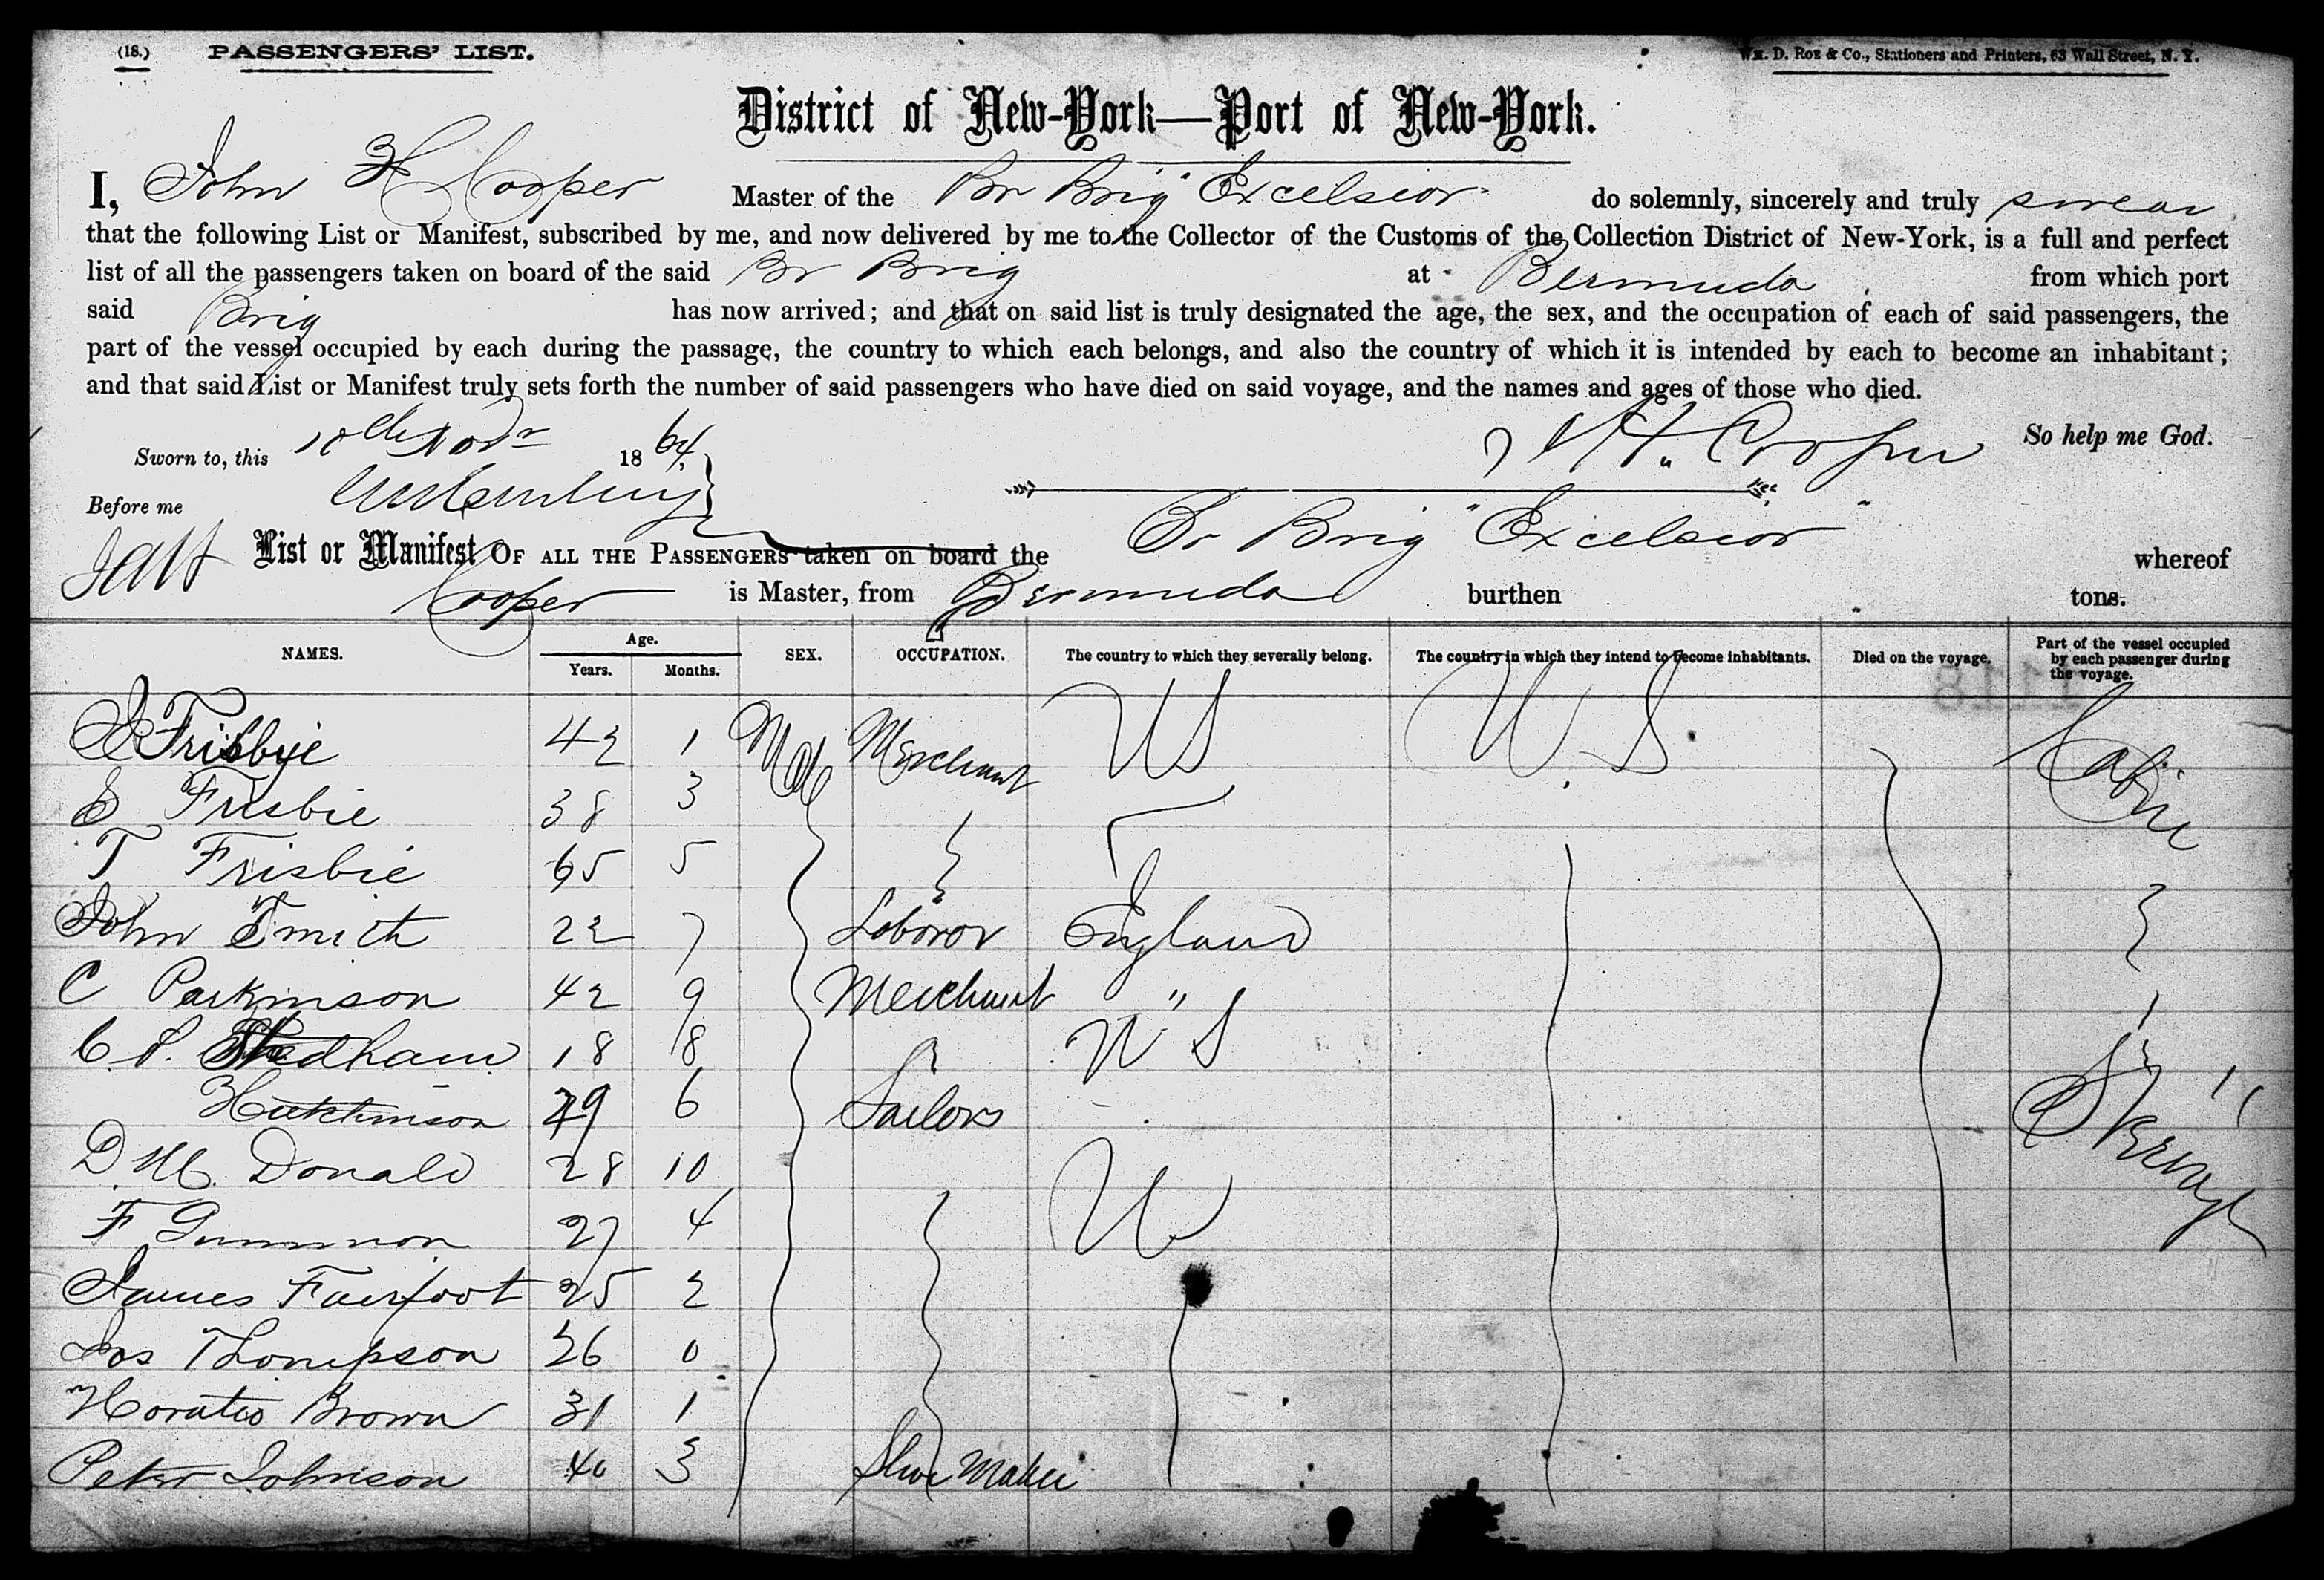 (18.) PASSENGERS' LIST. Wm. D. Roe & Co., Stationers and Printers, 63 Wall Street, N. Y.
District of New-York—Port of New-York.
I, John H Cooper Master of the Br Brig "Excelsior" do solemnly, sincerely and truly swear
that the following List or Manifest, subscribed by me, and now delivered by me to the Collector of the Customs of the Collection District of New-York, is a full and perfect
list of all the passengers taken on board of the said Br Brig at Bermuda from which port
said Brig has now arrived; and that on said list is truly designated the age, the sex, and the occupation of each of said passengers, the
part of the vessel occupied by each during the passage, the country to which each belongs, and also the country of which it is intended by each to become an inhabitant;
and that said List or Manifest truly sets forth the number of said passengers who have died on said voyage, and the names and ages of those who died.
Sworn to, this 10th Novr 1864, J H. Cooper So help me God.
Before me
List or Manifest OF ALL THE PASSENGERS taken on board the Br Brig "Excelsior" whereof
Cooper is Master, from Bermuda burthen tons.
NAMES. Age. Years. Months. SEX. OCCUPATION. The country to which they severally belong. The country in which they intend to become inhabitants. Died on the voyage. Part of the vessel occupied by each passenger during the voyage.
Frisbie 42 1 Male Merchant US U.S. Cabin
S Frisbie 38 3
T Frisbie 65 5
John Smith 22 7 Laboror England
C Parkinson 42 9 Merchant "
C. S. Stedham 18 8 U S
Hutchinson 29 6 Sailors Steerage
D. Mc. Donald 28 10 U
F 27 4
James Fairfoot 25 2
Jos Thompson 26 0
Horatio Brown 31 1
Peter Johnson 40 3 Shoe Maker